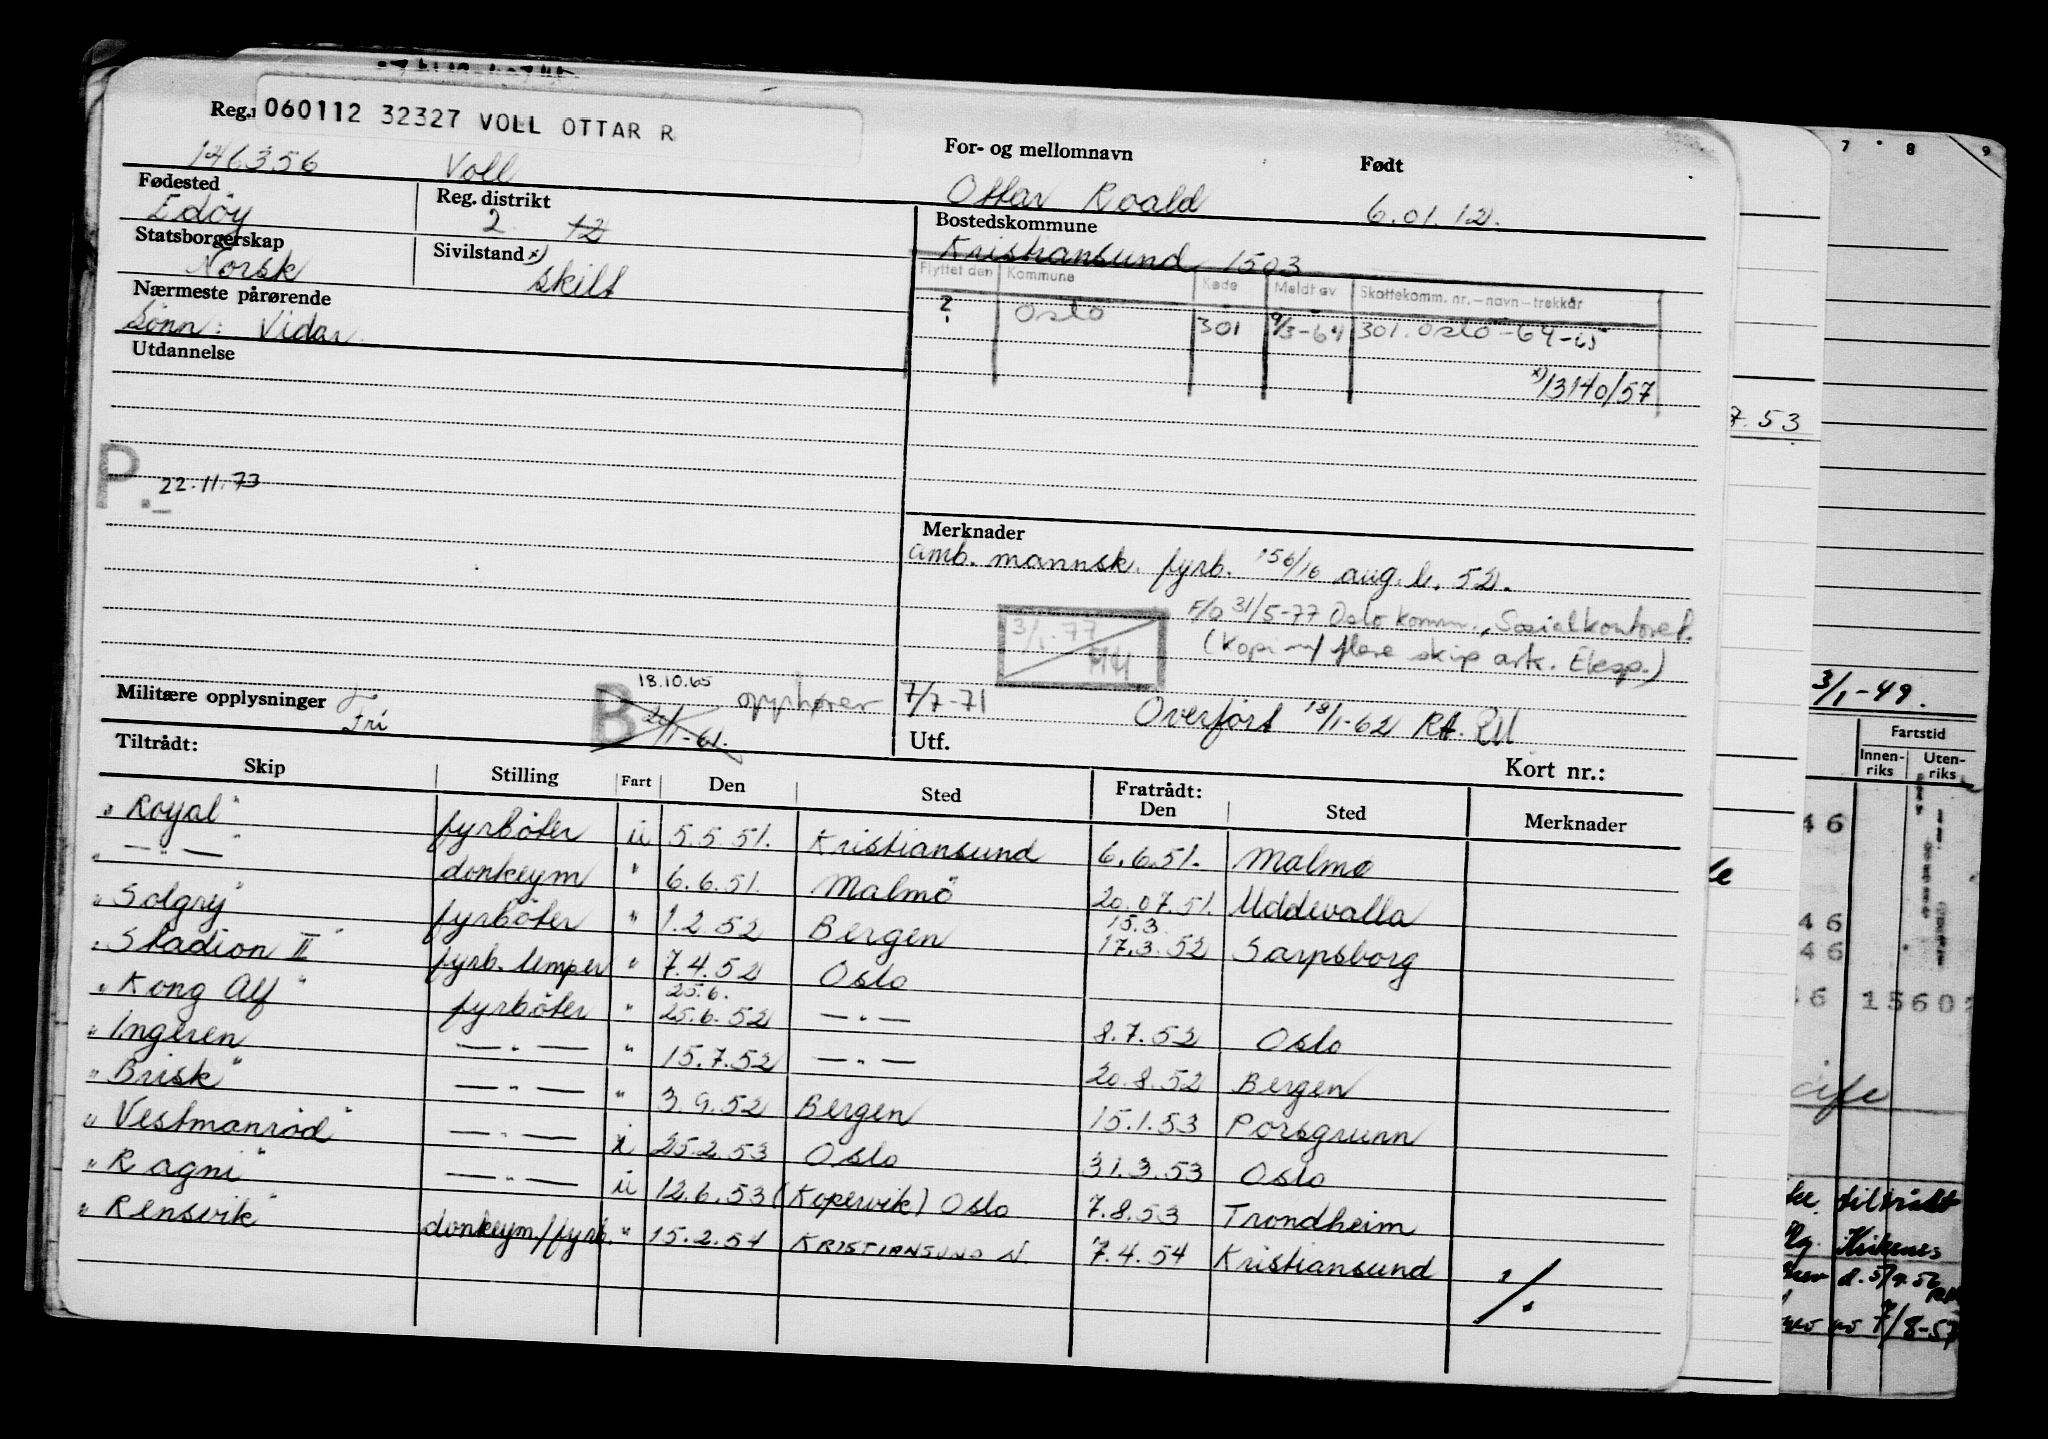 Reg.n 060112 32327 VOLL OTTAR R
For- og mellomnavn Født
146356 Voll Ottar Roald 6.01.12.
Fødested Reg. distrikt Bostedskommune
Edöy 2 12 Kristiansund 1503
Statsborgerskap Sivilstand x)
Norsk skilt
Flyttet den Kommune Kode Meldt av Skattekomm. nr.–navn–trekkår
Nærmeste pårørende
Sönn: Vidar
? Oslo 301 9/3-64 301. Oslo -64-65
Utdannelse
x) 13140/57
7.53
P. 22.11.73
Merknader
amb. mannsk. fyrb. 156/16 aug. l. 52.
F/O 31/5-77 Oslo komm., Sosialkontoret.
3/1-77
(kopi m/ flere skip ark. Eksp.)
Militære opplysninger Fri
B 18.10.65 opphører 7/7-71
Overført 18/1-62 RA.
3/1-49.
Tiltrådt: Utf. Kort nr.:
Skip Stilling Fart Den Sted Fratrådt: Den Sted Merknader
Fartstid
Innenriks Utenriks
"Royal" fyrböter u 5.5.51. Kristiansund 6.6.51. Malmö
" — " — " donkeym " 6.6.51. Malmö 20.07.51. Uddevalla
"Solgry" fyrböter " 1.2.52 Bergen 15.3. 17.3.52 Sarpsborg
"Stadion II" fyrb. lemper " 7.4.52 Oslo
"Kong Alf" fyrböter " 25.6. 25.6.52 — " — 8.7.52 Oslo
"Ingeren — " — " 15.7.52 — " — 20.8.52 Bergen
"Brisk" — " — " 3.9.52 Bergen 15.1.53 Porsgrunn
"Vestmanröd" — " — i 25.2.53 Oslo 31.3.53 Oslo
"Ragni" — " — u 12.6.53 (Kopervik) Oslo 7.8.53 Trondheim
"Rensvik" donkeym/fyrb. " 15.2.54 KRISTIANSUND N. 7.4.54 Kristiansund
./.
7 8 9
46
46
46
46 1560
tiltrådt
Kirkenes
7/8-57